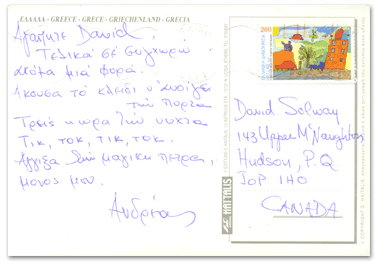 ΕΛΛΑΔΑ - GREECE - GRECE - GRIECHENLAND - GRECIA
Αγαπητέ David,
Τελικά σέ συγχωρώ
ακόμα μιά φορά.
Άκουσα τό κλειδί ν' ανοίγει
τήν πόρτα
Τρείς η ώρα τήν νύχτα
Τικ, τοκ, τικ, τοκ.
Άγγιξα τήν μαγική πέτρα,
μόνος μου.
Ανδρέας
200
David Solway
143 Upper McNaughton
Hudson, P.Q
JOP 1HO
CANADA
HAITALIS